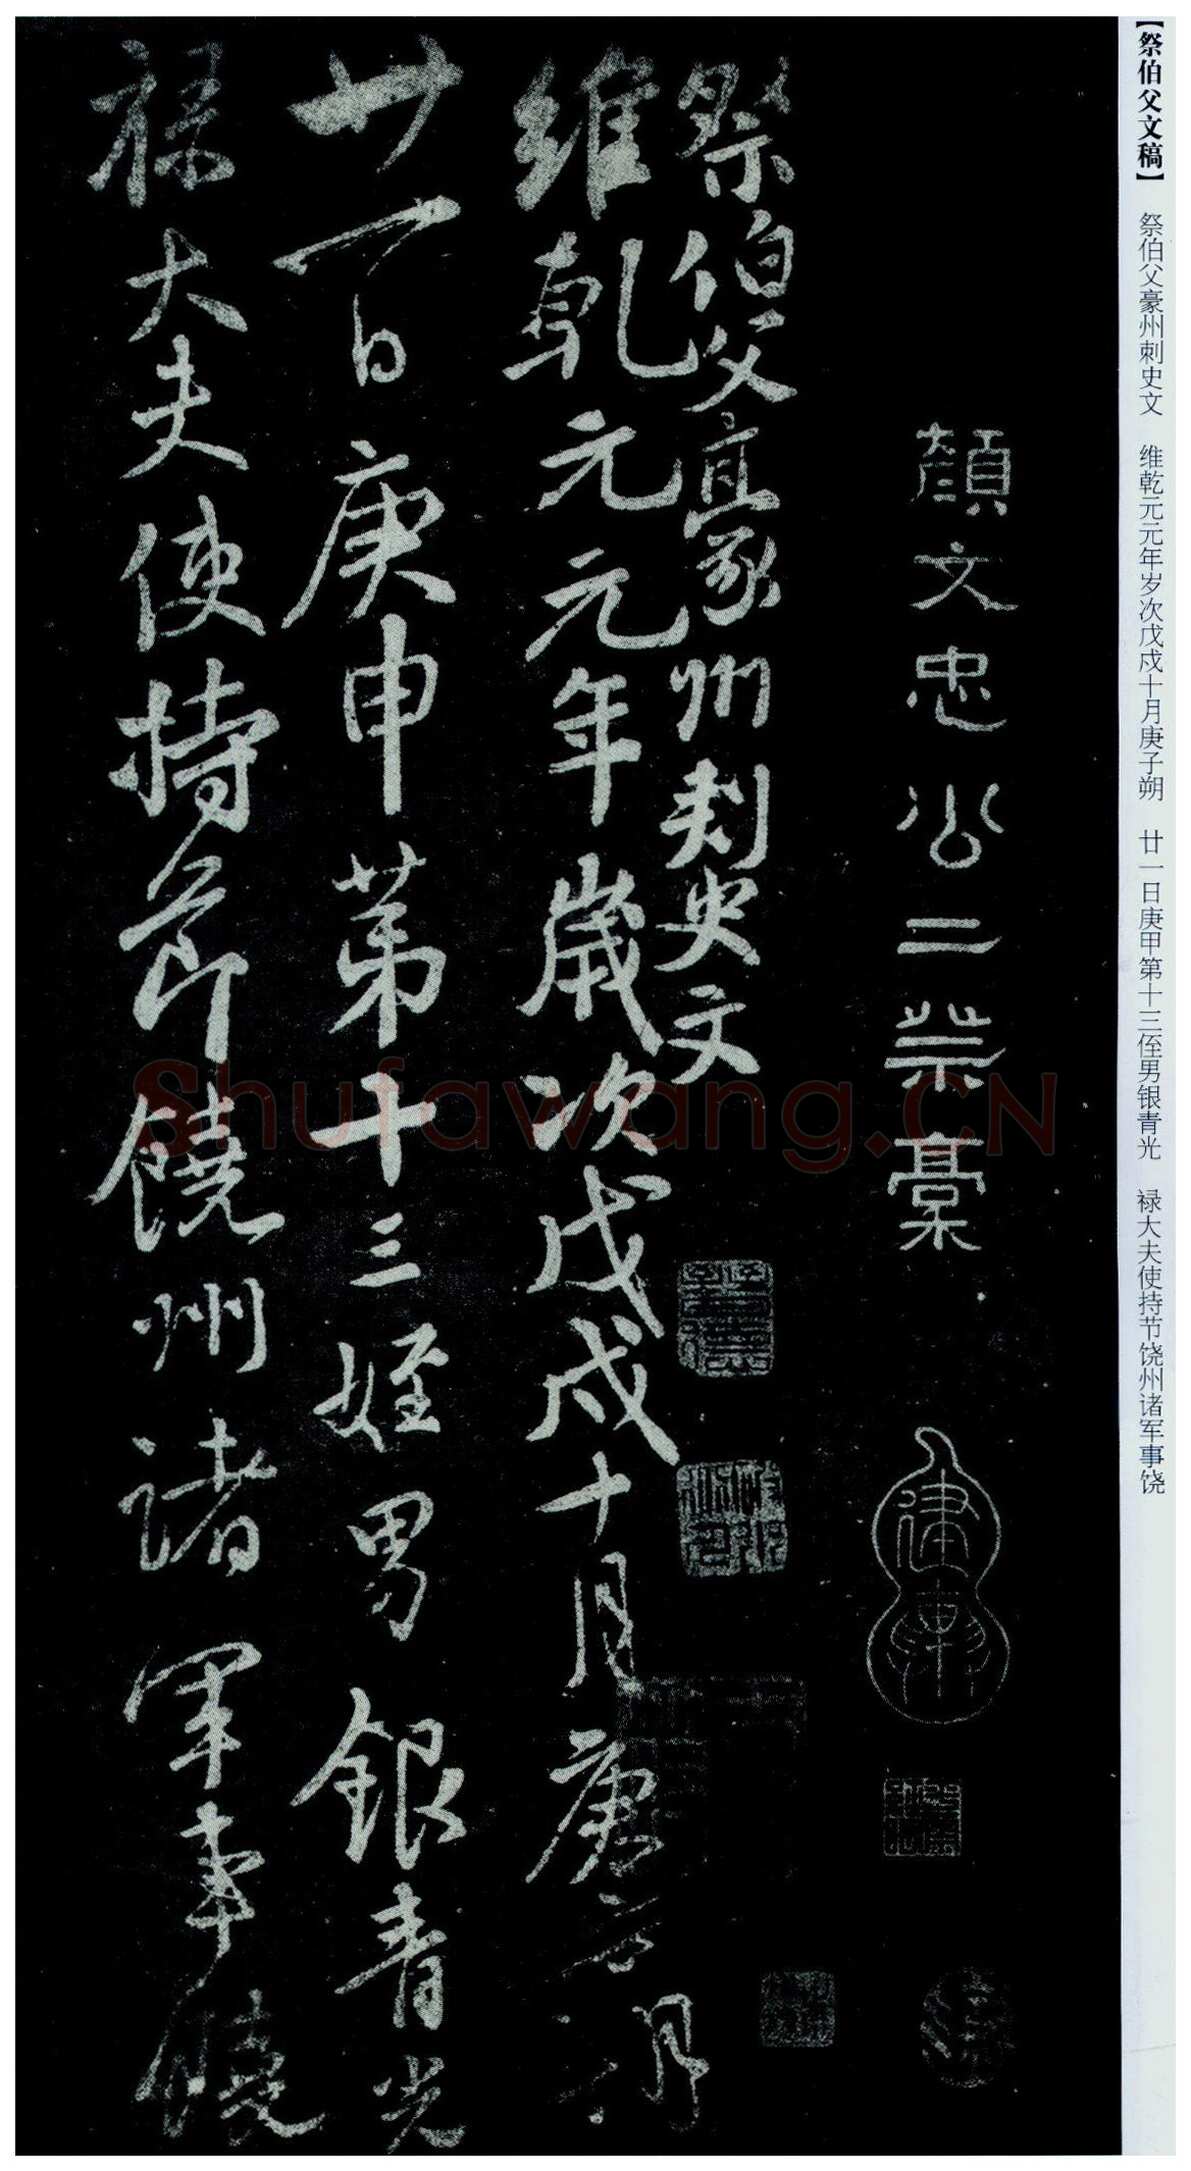 【祭伯父文稿】 祭伯父豪州刺史文 维乾元元年岁次戊戍十月庚子朔 廿一日庚甲第十三侄男银青光 禄大夫使持节饶州诸军事饶
顔文忠公二祭稾
祭伯父豪州刺史文
維乾元元年歲次戊戌十月庚子朔
廿一日庚申第十三姪男銀青光
祿大夫使持節饒州諸軍事饒
Shufawang.CN